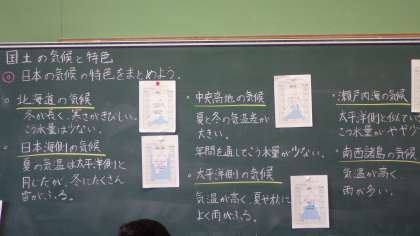 国土の気候と特色
◎日本の気候の特色をまとめよう。
○北海道の気候
冬が長く、寒さがきびしい。
こう水量は少ない。
○日本海側の気候
夏の気温は太平洋側と
同じだが、冬にたくさん
雪がふる。
・中央高地の気候
夏と冬の気温差が
大きい。
年間を通してこう水量が少ない。
・太平洋側の気候
気温が高く、夏や秋に
よく雨がふる。
・瀬戸内海の気候
太平洋側と似てい
こう水量が やや
・南西諸島の気候
気温が高く
雨が多い。